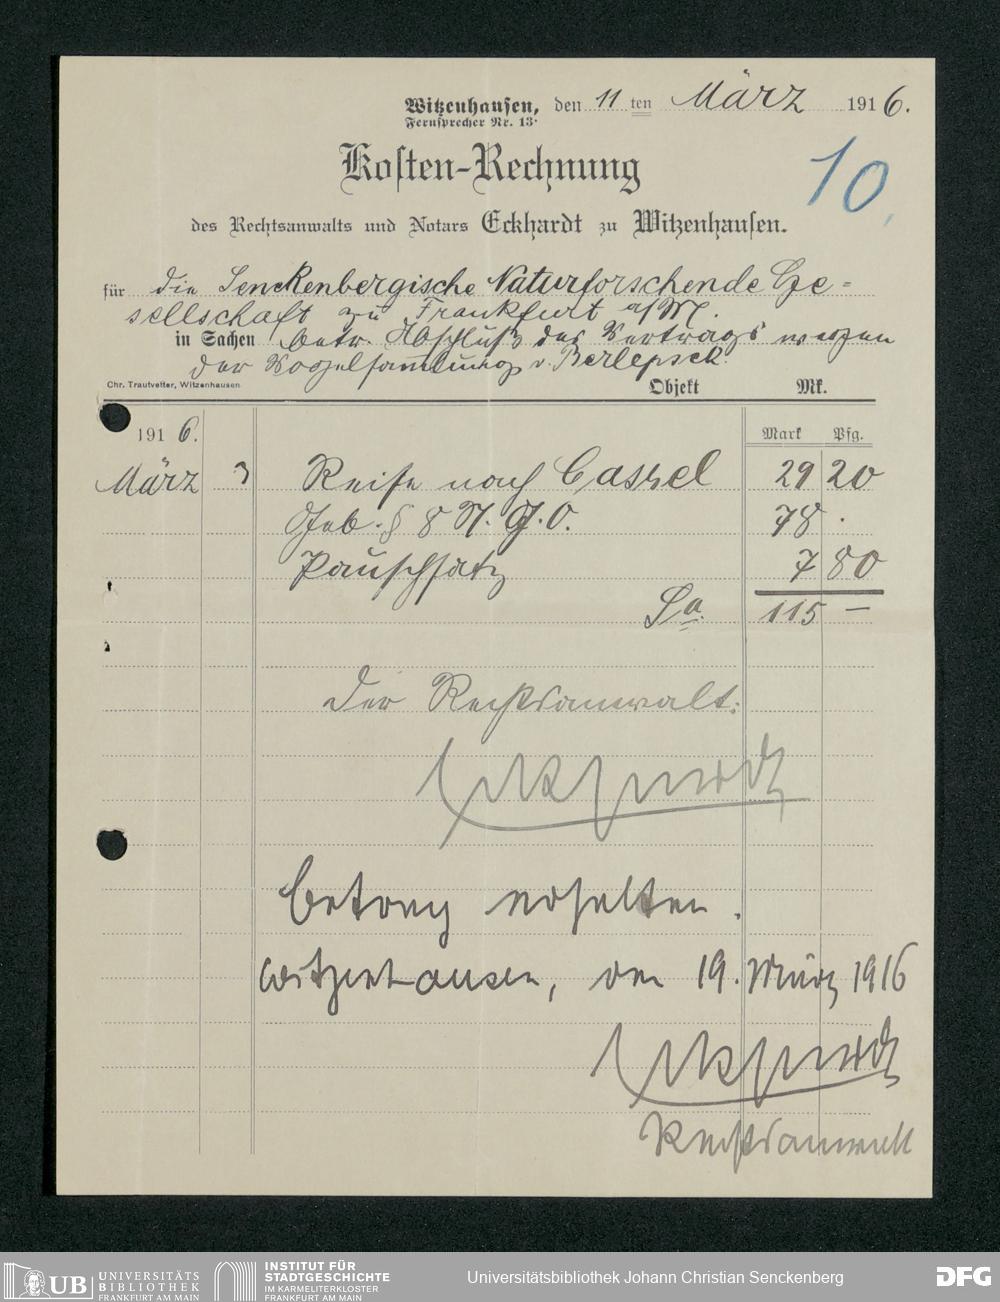 Witzenhausen, den 11 ten März 1916.
Fernsprecher Nr. 13.
Kosten-Rechnung
10.
des Rechtsanwalts und Notars Eckhardt zu Witzenhausen.
für die Senckenbergische Naturforschende Ge=
sellschaft zu Frankfurt a/M.
in Sachen betr. Abschluß des Vertrags wegen
der Vogelsammlung v. Berlepsch.
Chr. Trautvetter, Witzenhausen
Objekt Mk.
1916. Mark Pfg.
März 3 Reise nach Cassel 29 20
Geb. § 8 N. G. O. 78 .
Pauschsatz 7 80
Sa. 115 —
Der Rechtsanwalt:
Eckhardt
Betrag erhalten.
Witzenhausen, den 19. März 1916
Eckhardt
Rechtsanwalt
UB UNIVERSITÄTS
BIBLIOTHEK
FRANKFURT AM MAIN
INSTITUT FÜR
STADTGESCHICHTE
IM KARMELITERKLOSTER
FRANKFURT AM MAIN
Universitätsbibliothek Johann Christian Senckenberg
DFG